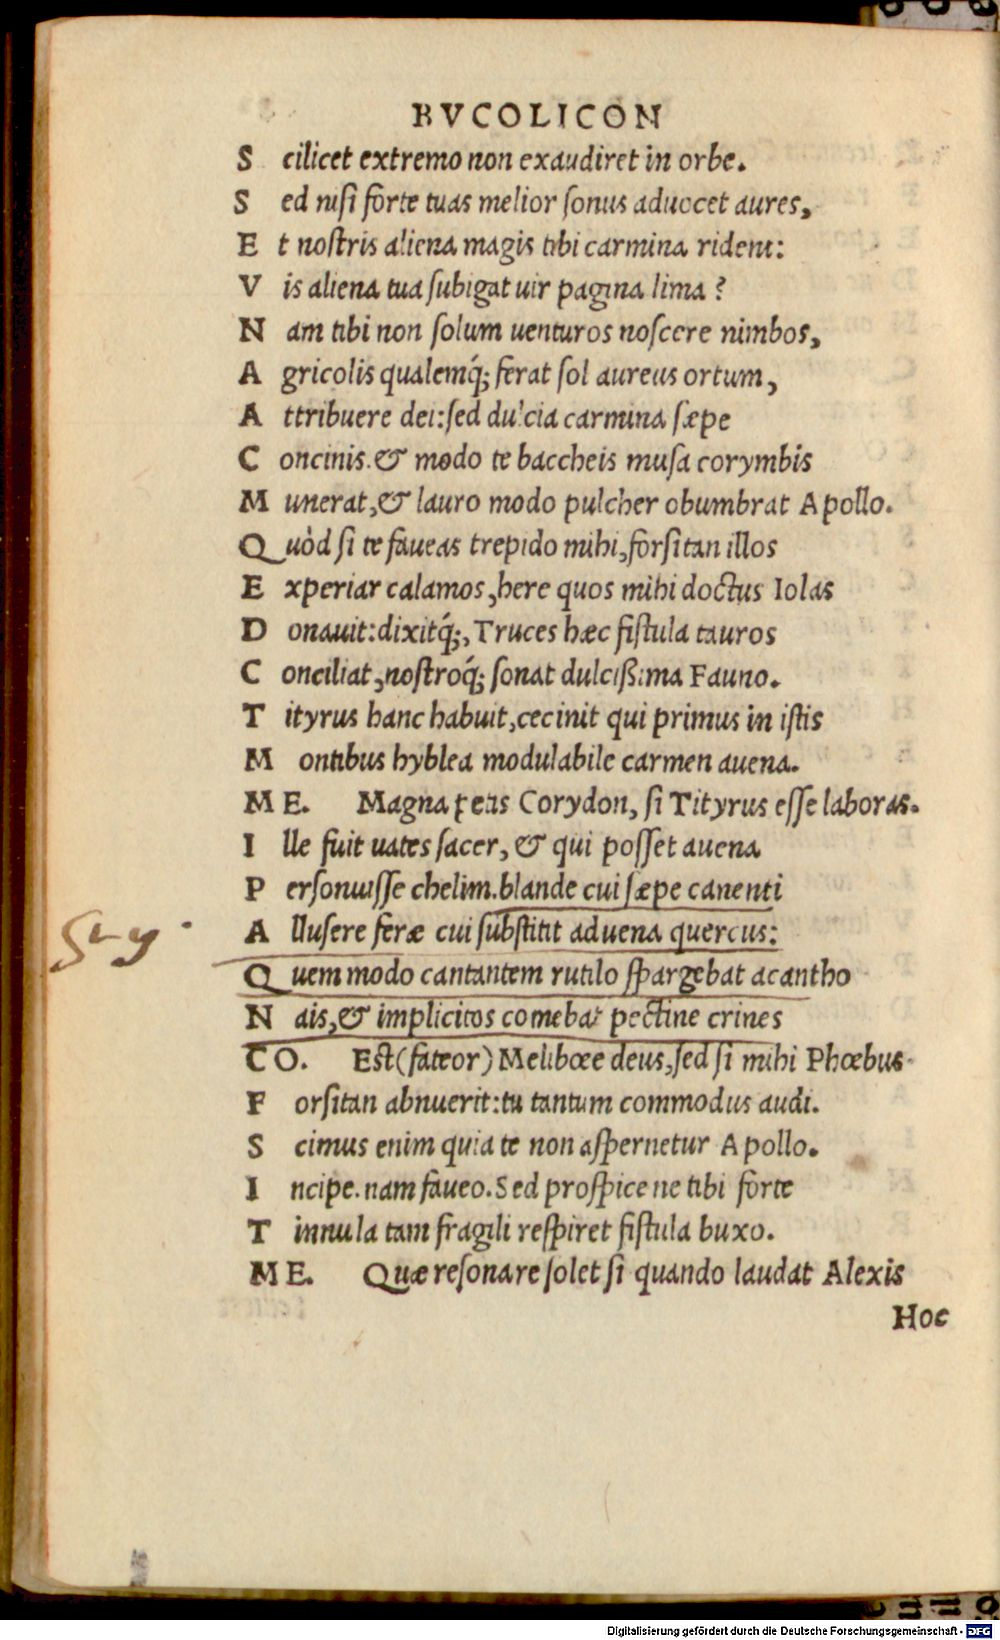 BVCOLICON
S cilicet extremo non exaudiret in orbe.
S ed nisi forte tuas melior sonus aduocet aures,
E t nostris aliena magis tibi carmina rident:
V is aliena tua subigat uir pagina lima?
N am tibi non solum uenturos noscere nimbos,
A gricolis qualemq́; ferat sol aureus ortum,
A ttribuere dei:sed dulcia carmina sæpe
C oncinis.& modo te baccheis musa corymbis
M unerat,& lauro modo pulcher obumbrat Apollo.
Q uòd si te faueas trepido mihi,forsitan illos
E xperiar calamos,here quos mihi doctus Iolas
D onauit:dixitq́;,Truces hæc fistula tauros
C onciliat,nostroq́; sonat dulcißima Fauno.
T ityrus hanc habuit,cecinit qui primus in istis
M ontibus hyblea modulabile carmen auena.
ME. Magna petis Corydon, si Tityrus esse laboras.
I lle fuit uates sacer, & qui posset auena
P ersonuisse chelim.blande cui sæpe canenti
A llusere feræ cui substitit aduena quercus:
Q uem modo cantantem rutilo spargebat acantho
N ais,& implicitos comebat pectine crines
CO. Est(fateor)Melibœe deus,sed si mihi Phœbus
F orsitan abnuerit:tu tantum commodus audi.
S cimus enim quia te non aspernetur Apollo.
I ncipe.nam faueo.Sed prospice ne tibi forte
T innula tam fragili respiret fistula buxo.
ME. Quæ resonare solet si quando laudat Alexis
Hoc
Digitalisierung gefördert durch die Deutsche Forschungsgemeinschaft - DFG